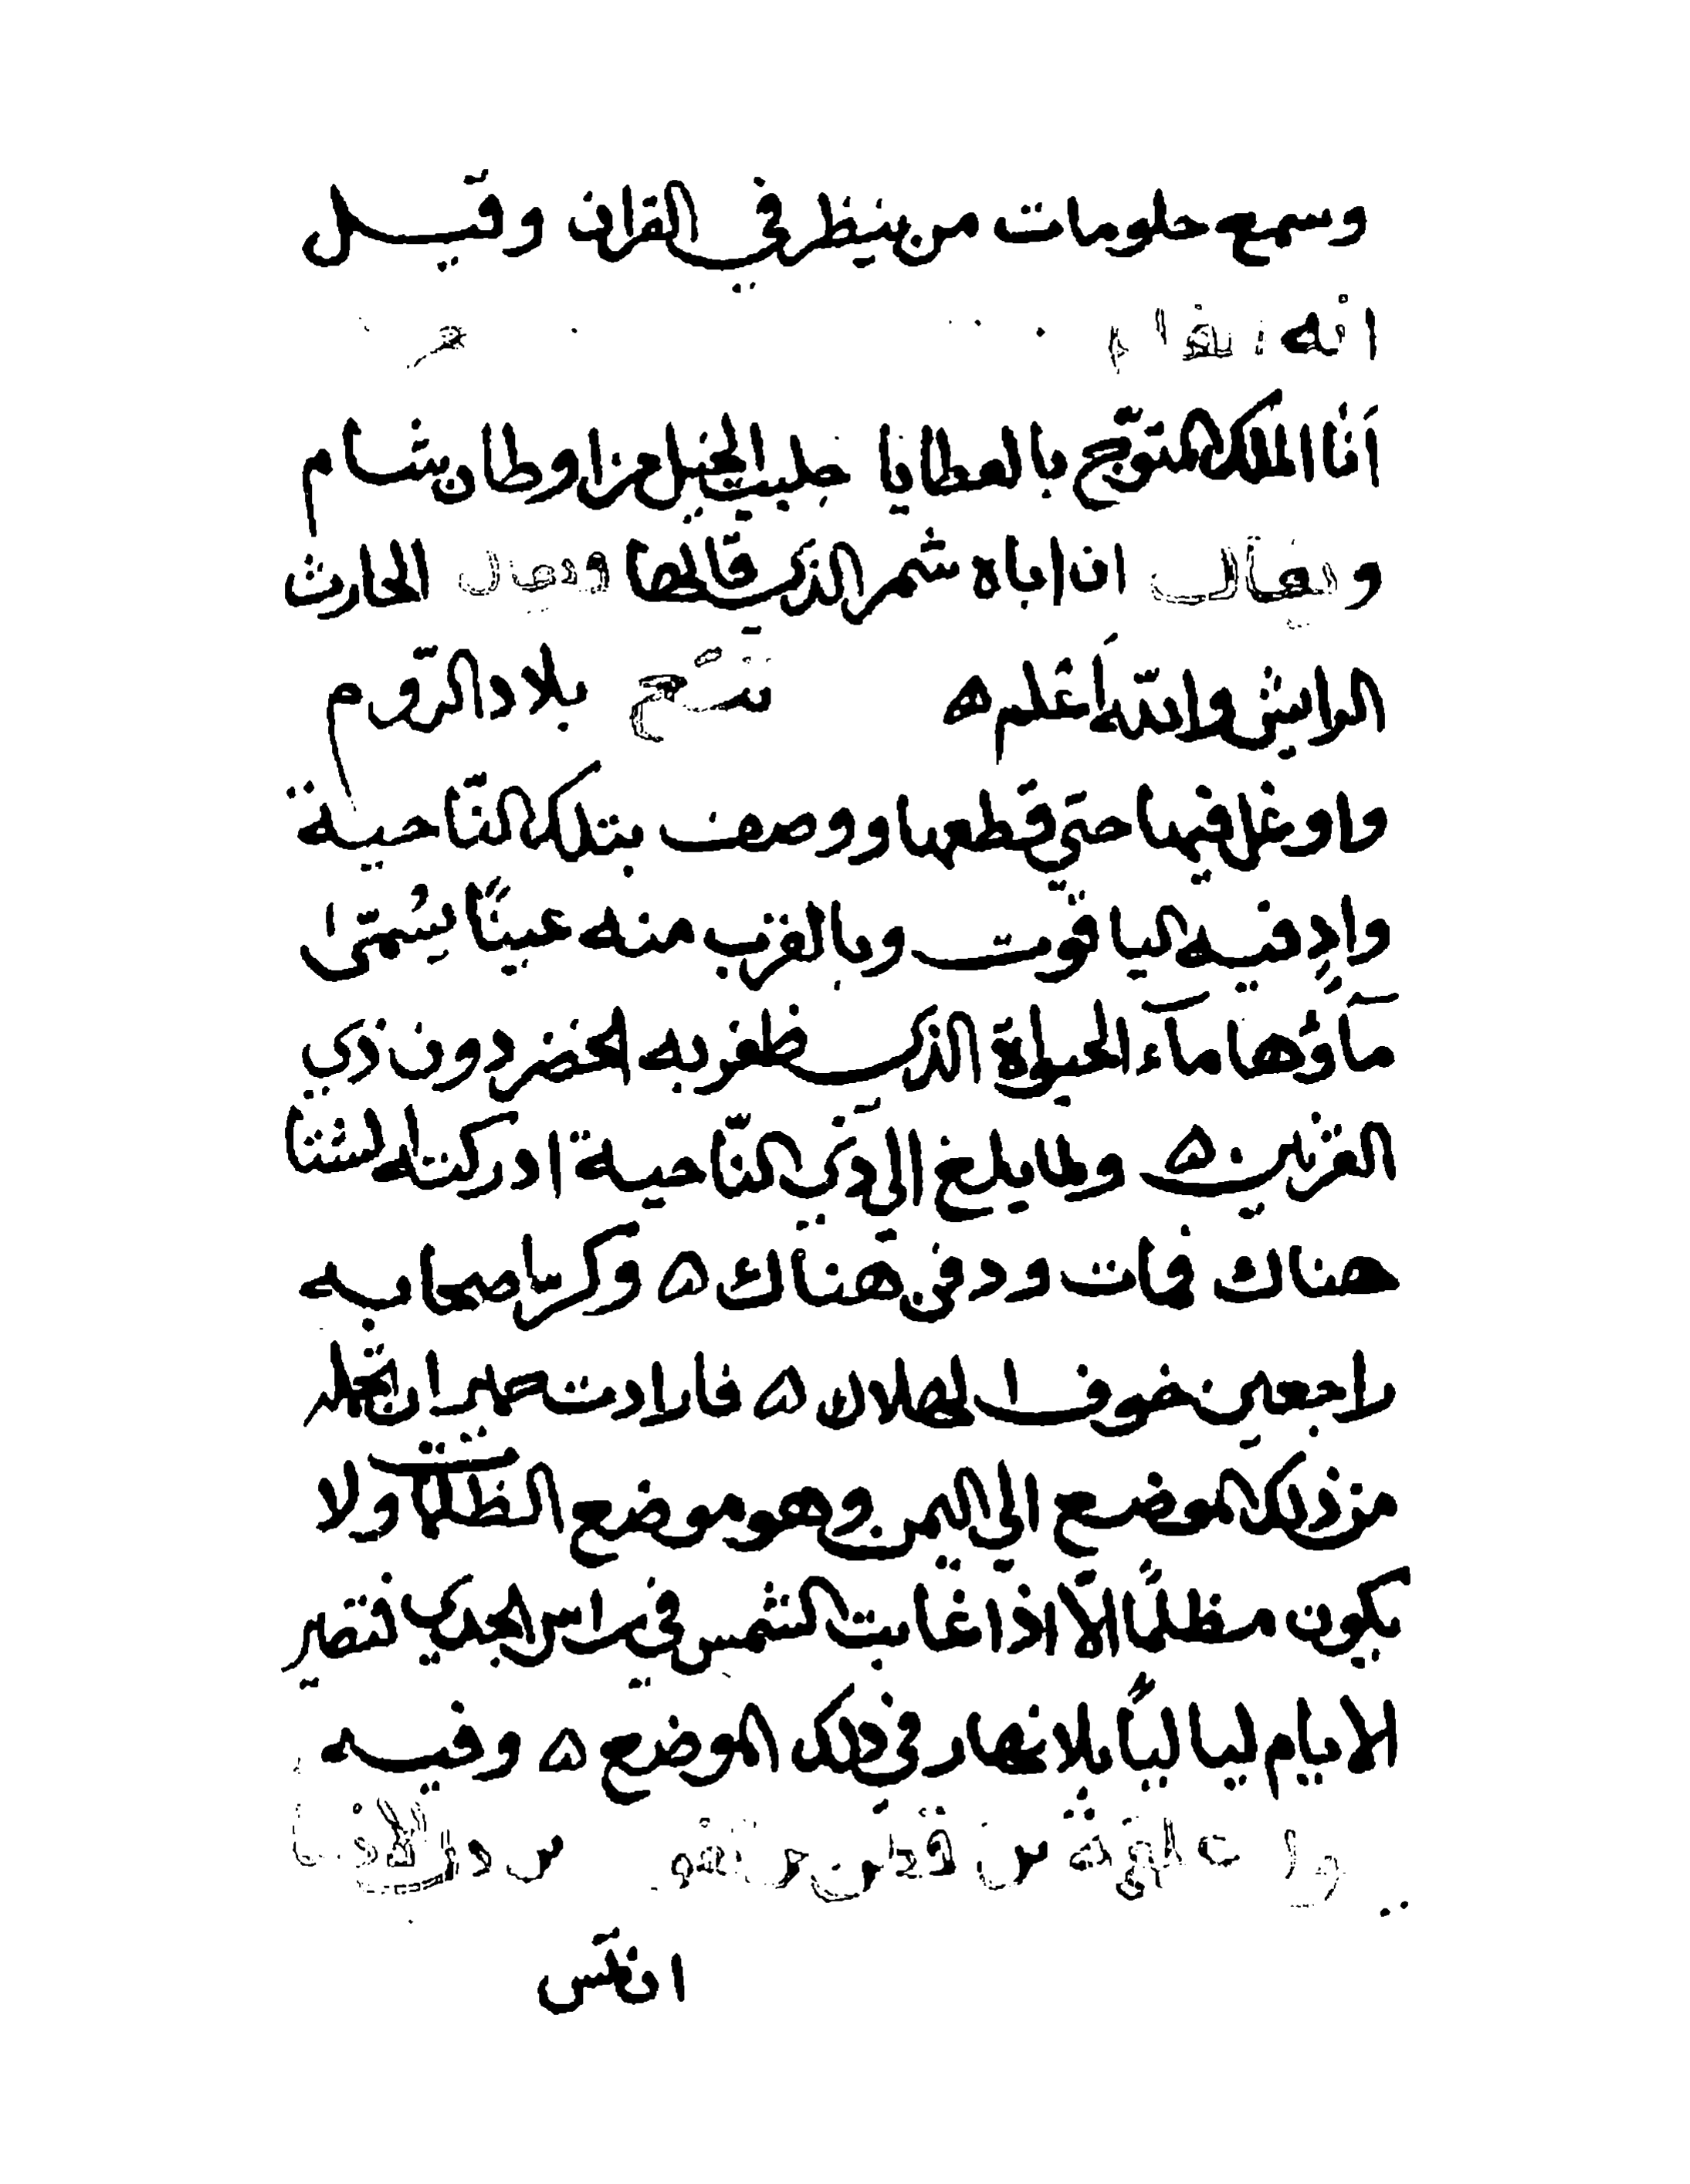 وسمع حلومات من ينظر في القران وقيل
انه
أنا الملك المتوّج بالعطايا جلبت الخيل من اوطان شام
ويقال ان اباه شمر الذي قالها ويقال الحارث
الرايش والله أعلم ه بلاد الرّوم
واوغل فيها حتي قطعها ووصف بتلك النّاحية
وادٍ فيه الياقوت وبالقرب منه عينًا يسُمّى
مآؤُها مآء الحيوة الذي ظفر به الخضر دون ذي
القرنين ه ولما بلغ الي ذي النّاحية ادركه الشتا
هناك فمات ودفن هناك ه وكر اصحابه
راجعين خوف الهلاك ه فارادت حمير ان تحمله
من ذلك الموضع الي اليمن وهو موضع الظلمات ولا
يكون مظلمًا الّا اذا غابت الشمس في راس الجدي فتصير
الايام لياليًا بلا نهار في ذلك الموضع ه وفيه
علقمة بن